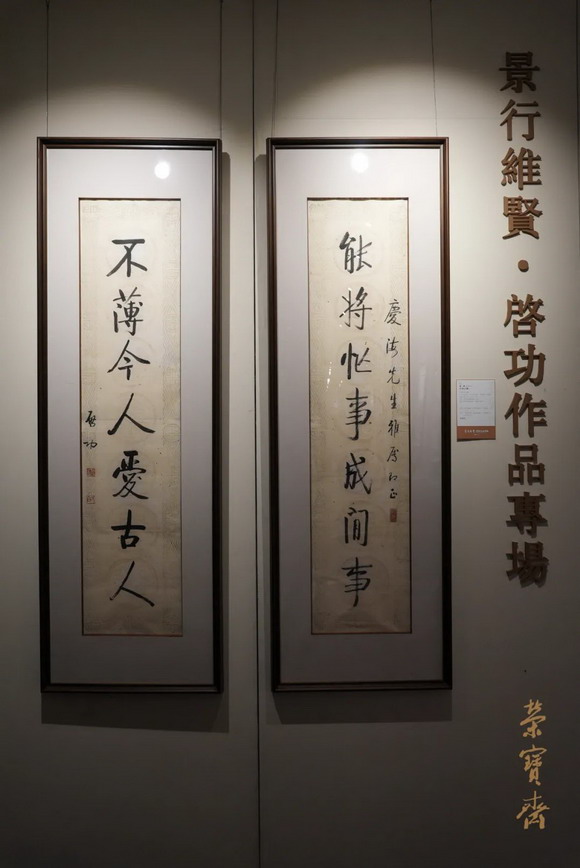 景行維賢·啓功作品專場
榮寶齋
慶先生雅屬即正
能將忙事成閒事
不薄今人愛古人
啓功